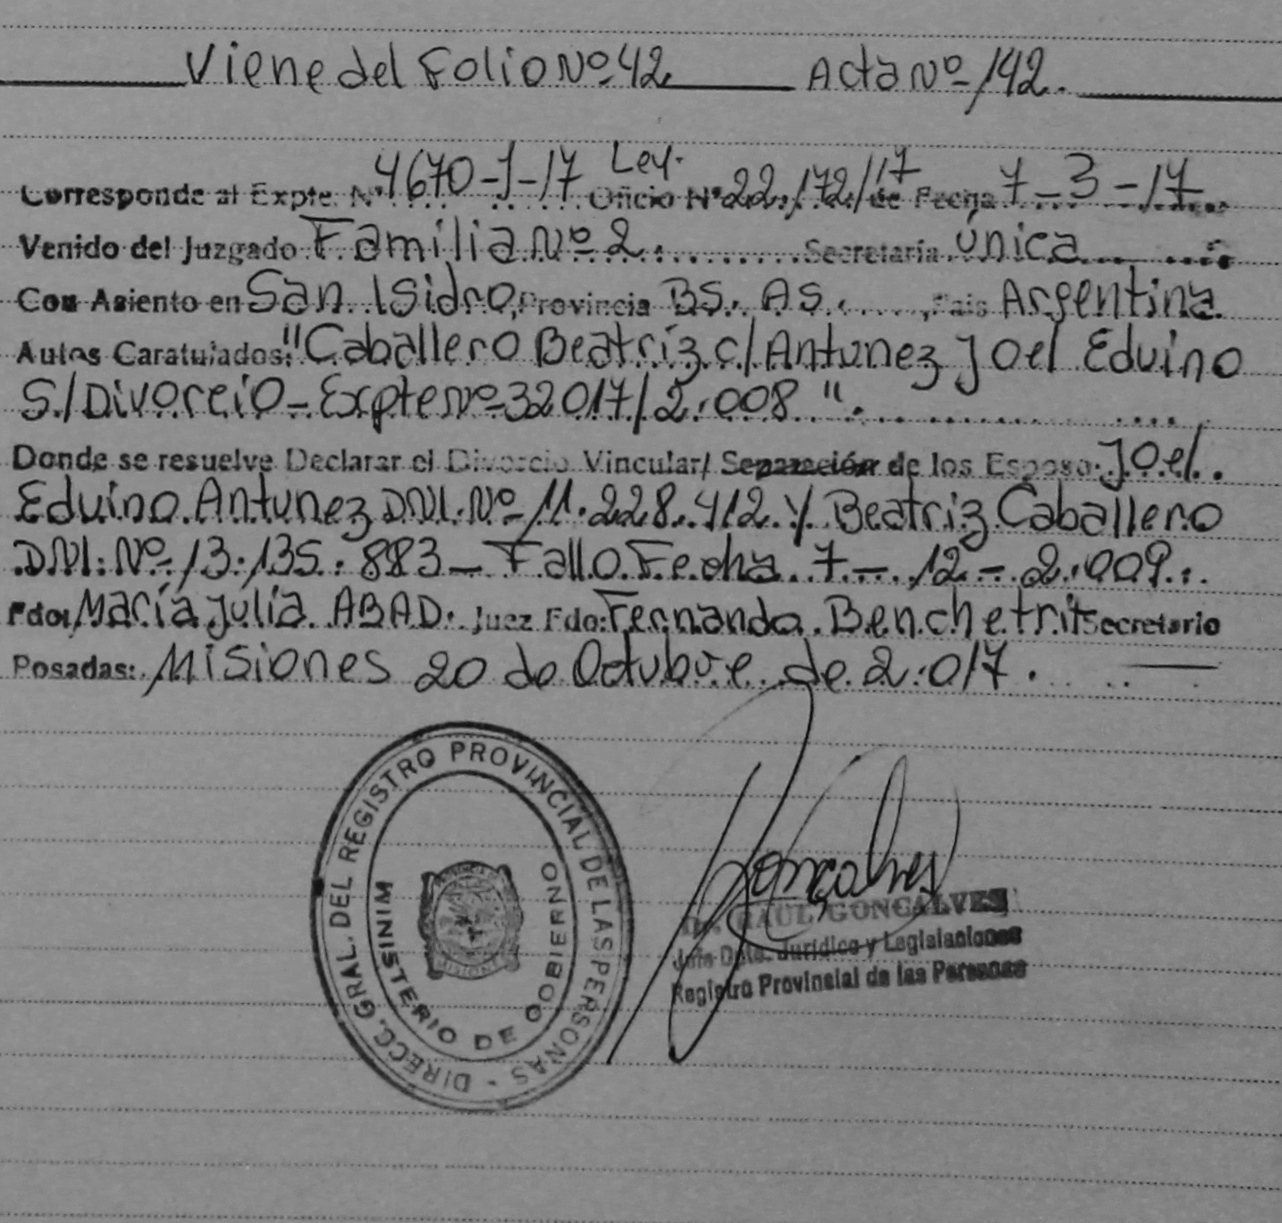 Viene del Folio Nº 42 Acta Nº 142.
Corresponde al Expte. Nº 4670-J-17 Ley. Oficio Nº 22.172/17 de Fecha 7-3-17
Venido del Juzgado Familia Nº 2. Secretaría única
Con Asiento en San Isidro, Provincia BS. AS., País Argentina
Autos Caratulados: "Caballero Beatríz c/ Antunez Joel Eduino
S/Divorcio-Expte Nº 32017/2.008".
Donde se resuelve Declarar el Divorcio Vincular/ Separación de los Esposo: Joel
Eduino Antunez DNI. Nº 11.228.412 y Beatriz Caballero
DNI: Nº 13.135.883- Fallo Fecha 7-12-2.009.
Fdo: María Julia ABAD. Juez Fdo: Fernando Benchetrit Secretario
Posadas: Misiones 20 de Octubre de 2.017.
DIRECC. GRAL. DEL REGISTRO PROVINCIAL DE LAS PERSONAS -
MINISTERIO DE GOBIERNO
Gonçalves
Dr. RAUL GONCALVES
Jefe Dpto. Jurídico y Legislaciones
Registro Provincial de las Personas